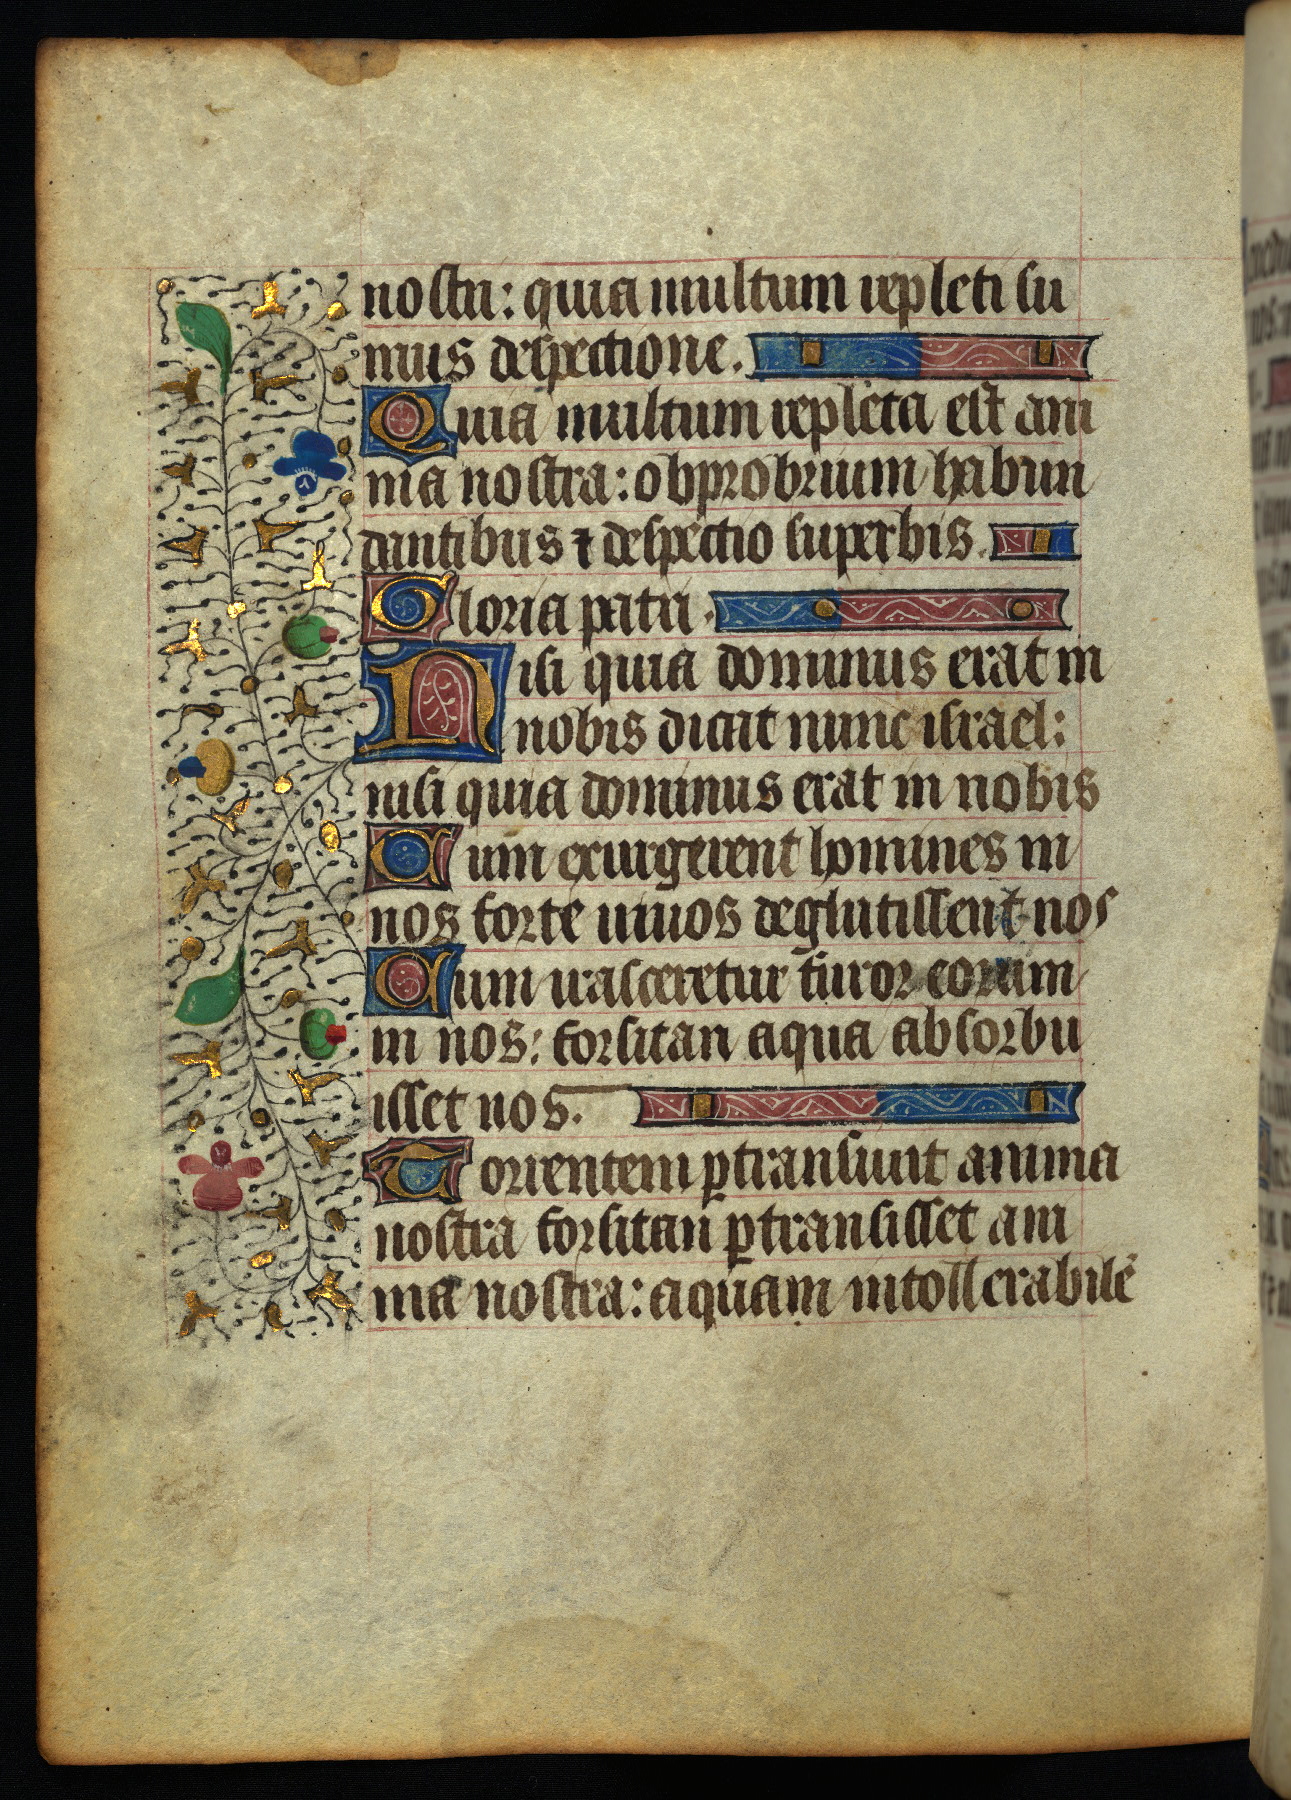 nostri: quia multum repleti su
mus despectione.
Quia multum repleta est ani
ma nostra: obprobrium habun
dantibus ⁊ despectio superbis.
Gloria patri.
Nisi quia dominus erat in
nobis dicat nunc israel:
nisi quia dominus erat in nobis
Cum exurgerent homines in
nos forte uiuos deglutissent nos
Cum irasceretur furor eorum
in nos: forsitan aqua absorbu
isset nos.
Torrentem ꝑtransiuit anima
nostra forsitan ꝑtransisset ani
ma nostra: aquam intollerabilē